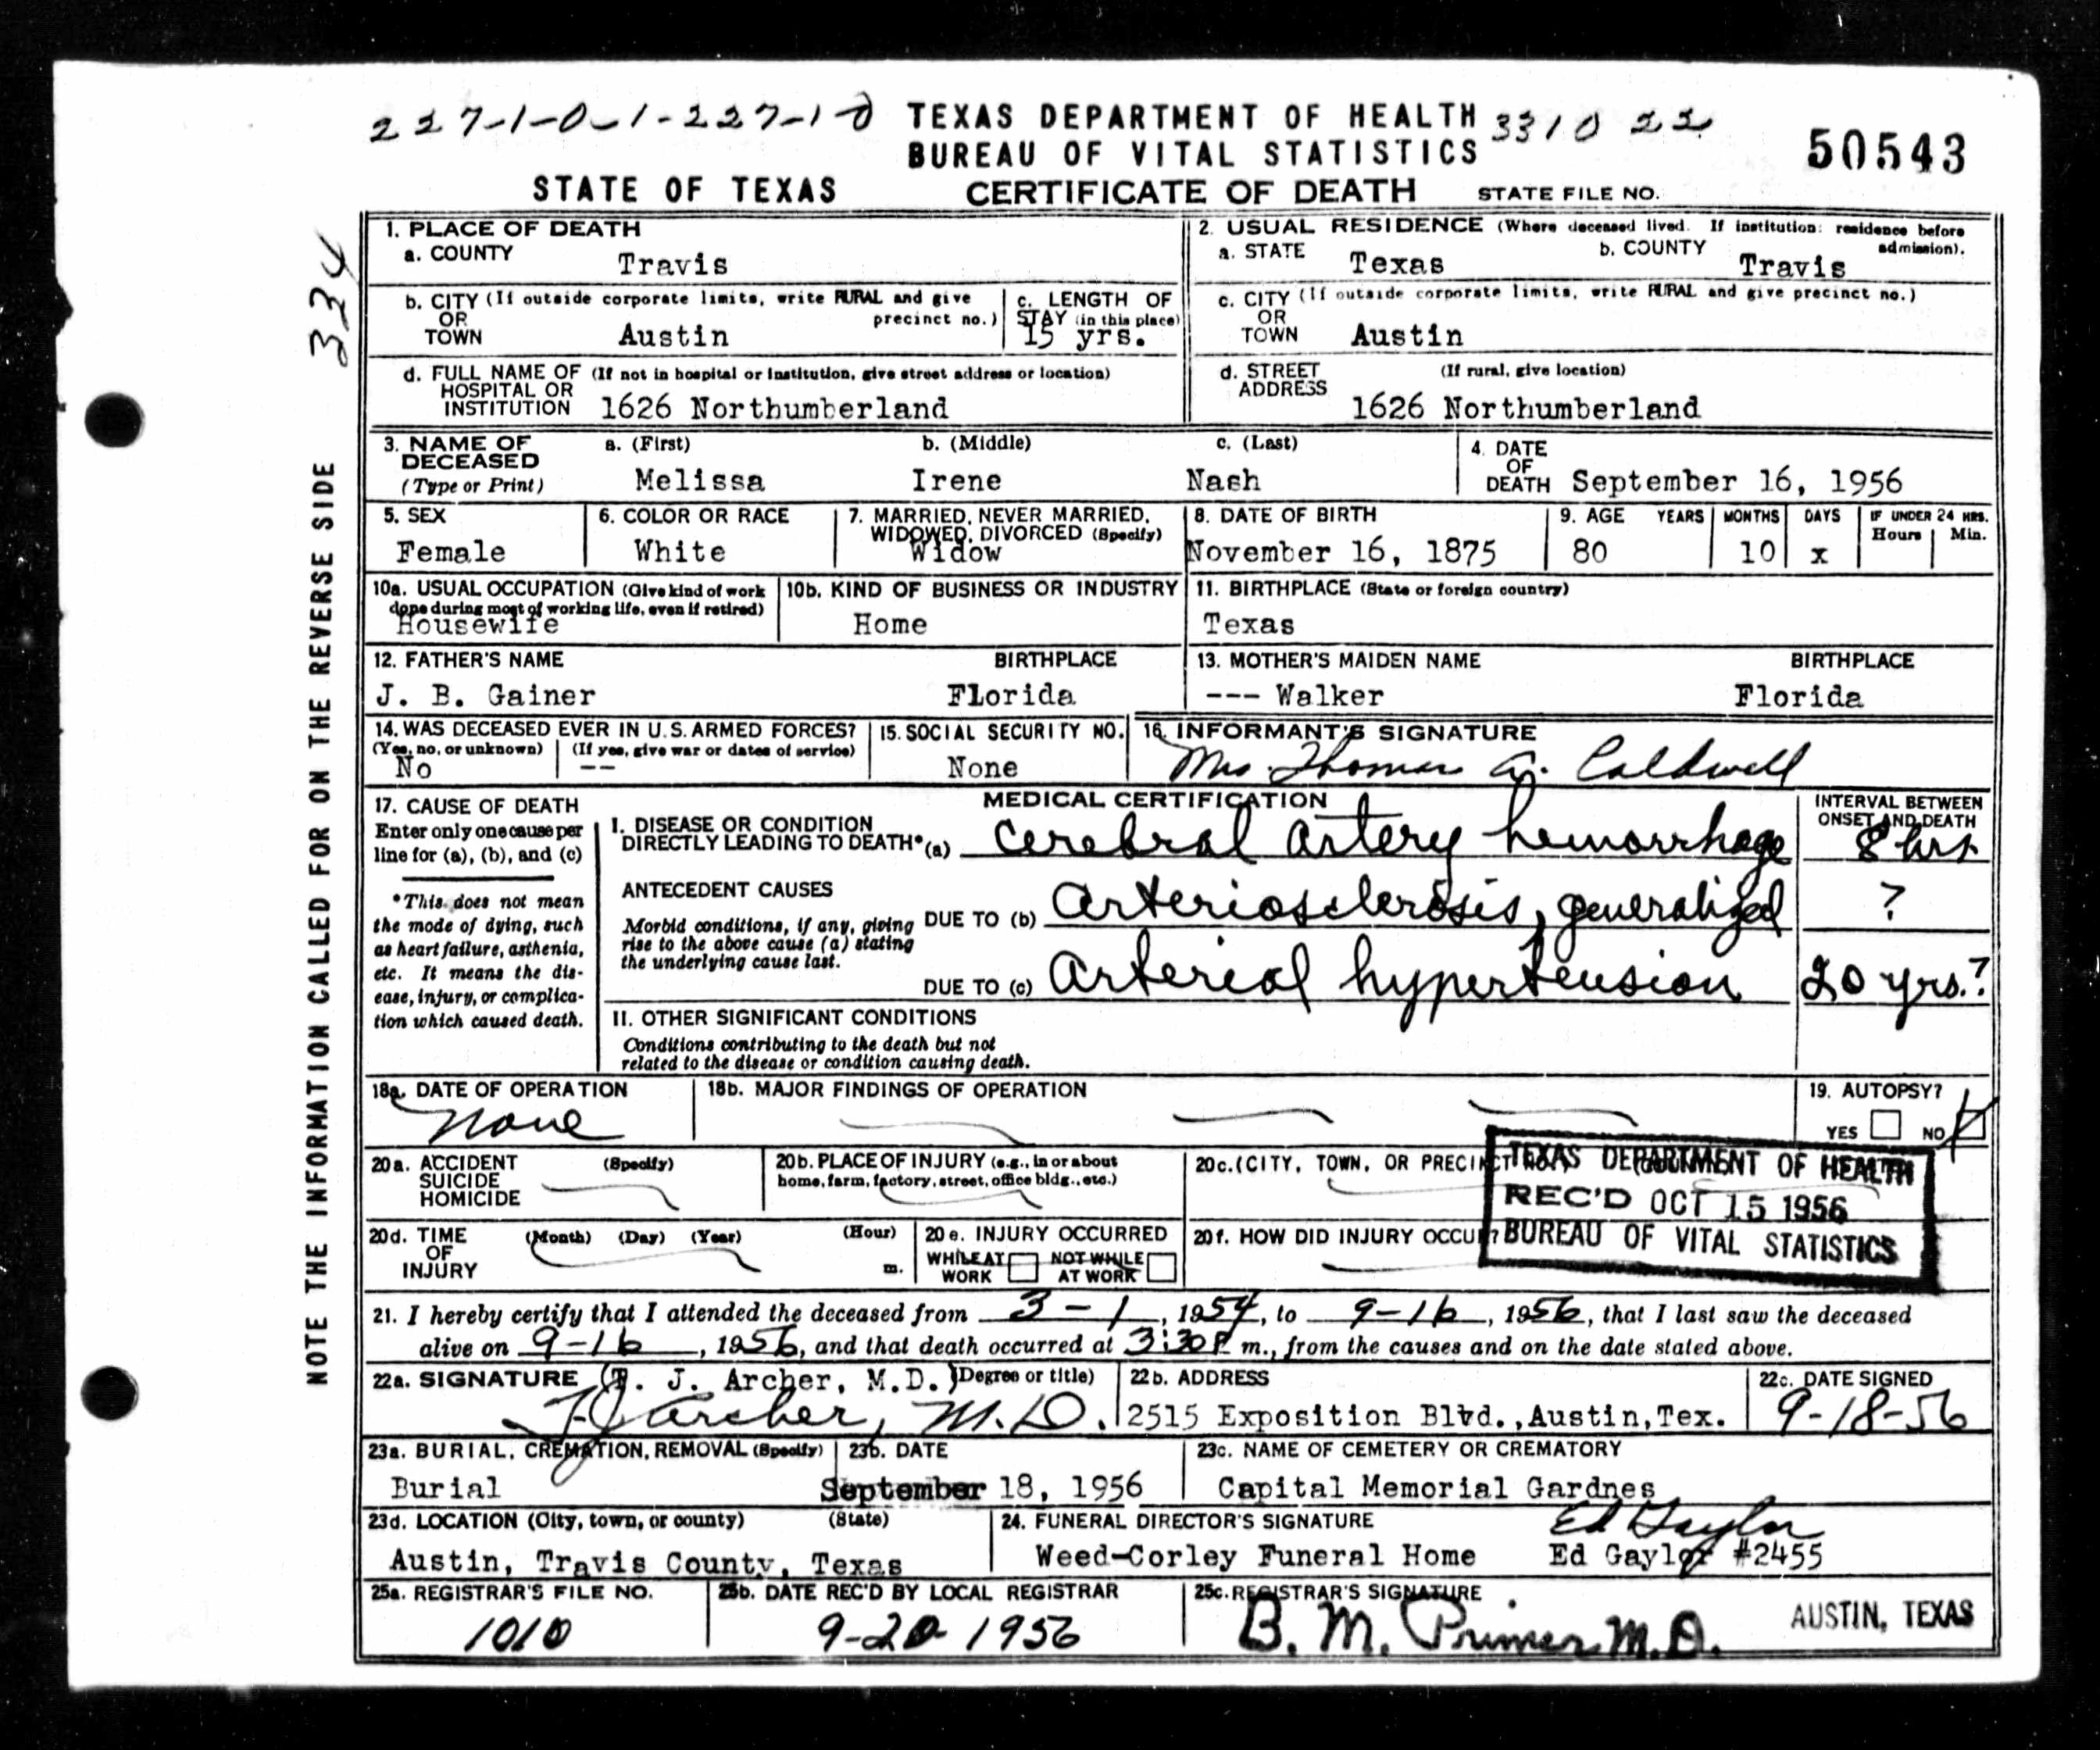 227-1-0-1-227-10 TEXAS DEPARTMENT OF HEALTH 3310 22
BUREAU OF VITAL STATISTICS 50543
STATE OF TEXAS CERTIFICATE OF DEATH STATE FILE NO.
334
NOTE THE INFORMATION CALLED FOR ON THE REVERSE SIDE
1. PLACE OF DEATH
a. COUNTY Travis
2. USUAL RESIDENCE (Where deceased lived. If institution: residence before admission).
a. STATE Texas b. COUNTY Travis
b. CITY (If outside corporate limits, write RURAL and give precinct no.)
OR
TOWN Austin
c. LENGTH OF
STAY (in this place)
15 yrs.
c. CITY (If outside corporate limits, write RURAL and give precinct no.)
OR
TOWN Austin
d. FULL NAME OF (If not in hospital or institution, give street address or location)
HOSPITAL OR
INSTITUTION 1626 Northumberland
d. STREET (If rural, give location)
ADDRESS
1626 Northumberland
3. NAME OF DECEASED (Type or Print)
a. (First) b. (Middle) c. (Last)
Melissa Irene Nash
4. DATE OF DEATH September 16, 1956
5. SEX
Female
6. COLOR OR RACE
White
7. MARRIED, NEVER MARRIED, WIDOWED, DIVORCED (Specify)
Widow
8. DATE OF BIRTH
November 16, 1875
9. AGE YEARS MONTHS DAYS IF UNDER 24 HRS.
Hours Min.
80 10 x
10a. USUAL OCCUPATION (Give kind of work
done during most of working life, even if retired)
Housewife
10b. KIND OF BUSINESS OR INDUSTRY
Home
11. BIRTHPLACE (State or foreign country)
Texas
12. FATHER'S NAME BIRTHPLACE
J. B. Gainer Florida
13. MOTHER'S MAIDEN NAME BIRTHPLACE
--- Walker Florida
14. WAS DECEASED EVER IN U.S. ARMED FORCES?
(Yes, no, or unknown) (If yes, give war or dates of service)
No --
15. SOCIAL SECURITY NO.
None
16. INFORMANT'S SIGNATURE
Mrs. Thomas G. Caldwell
17. CAUSE OF DEATH
Enter only one cause per
line for (a), (b), and (c)
*This does not mean
the mode of dying, such
as heart failure, asthenia,
etc. It means the dis-
ease, injury, or complica-
tion which caused death.
MEDICAL CERTIFICATION
INTERVAL BETWEEN
ONSET AND DEATH
I. DISEASE OR CONDITION
DIRECTLY LEADING TO DEATH* (a) cerebral artery hemorrhage 8 hrs
ANTECEDENT CAUSES
Morbid conditions, if any, giving
rise to the above cause (a) stating
the underlying cause last.
DUE TO (b) arteriosclerosis, generalized ?
DUE TO (c) arterial hypertension 20 yrs.?
II. OTHER SIGNIFICANT CONDITIONS
Conditions contributing to the death but not
related to the disease or condition causing death.
18a. DATE OF OPERATION
none
18b. MAJOR FINDINGS OF OPERATION
19. AUTOPSY?
YES NO
20a. ACCIDENT (Specify)
SUICIDE
HOMICIDE
20b. PLACE OF INJURY (e.g., in or about
home, farm, factory, street, office bldg., etc.)
20c. (CITY, TOWN, OR PRECINCT NO.) (COUNTY)
TEXAS DEPARTMENT OF HEALTH
REC'D OCT 15 1956
BUREAU OF VITAL STATISTICS
20d. TIME (Month) (Day) (Year) (Hour)
OF
INJURY m.
20e. INJURY OCCURRED
WHILE AT WORK NOT WHILE AT WORK
20f. HOW DID INJURY OCCUR?
21. I hereby certify that I attended the deceased from 3-1, 1954, to 9-16, 1956, that I last saw the deceased
alive on 9-16, 1956, and that death occurred at 3:30P m., from the causes and on the date stated above.
22a. SIGNATURE (T. J. Archer, M.D.) (Degree or title)
T J Archer, M.D.
22b. ADDRESS
2515 Exposition Blvd.,Austin,Tex.
22c. DATE SIGNED
9-18-56
23a. BURIAL, CREMATION, REMOVAL (Specify)
Burial
23b. DATE
September 18, 1956
23c. NAME OF CEMETERY OR CREMATORY
Capital Memorial Gardnes
23d. LOCATION (City, town, or county) (State)
Austin, Travis County, Texas
24. FUNERAL DIRECTOR'S SIGNATURE Ed Gaylor
Weed-Corley Funeral Home Ed Gaylor #2455
25a. REGISTRAR'S FILE NO.
1010
25b. DATE REC'D BY LOCAL REGISTRAR
9-20 1956
25c. REGISTRAR'S SIGNATURE
B. M. Primer M.D. AUSTIN, TEXAS